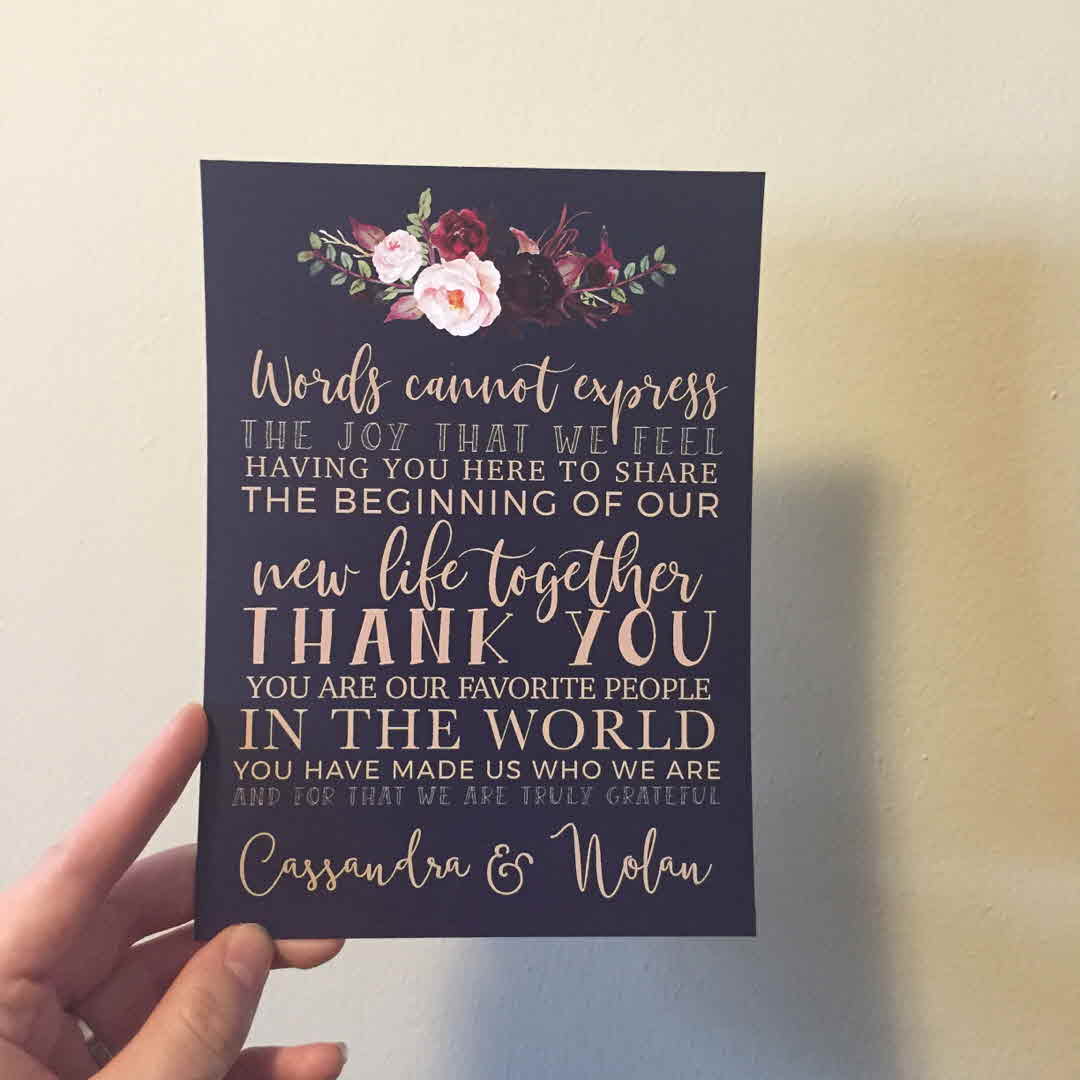 Words cannot express
THE JOY THAT WE FEEL
HAVING YOU HERE TO SHARE
THE BEGINNING OF OUR
new life together
THANK YOU
YOU ARE OUR FAVORITE PEOPLE
IN THE WORLD
YOU HAVE MADE US WHO WE ARE
AND FOR THAT WE ARE TRULY GRATEFUL
Cassandra & Nolan